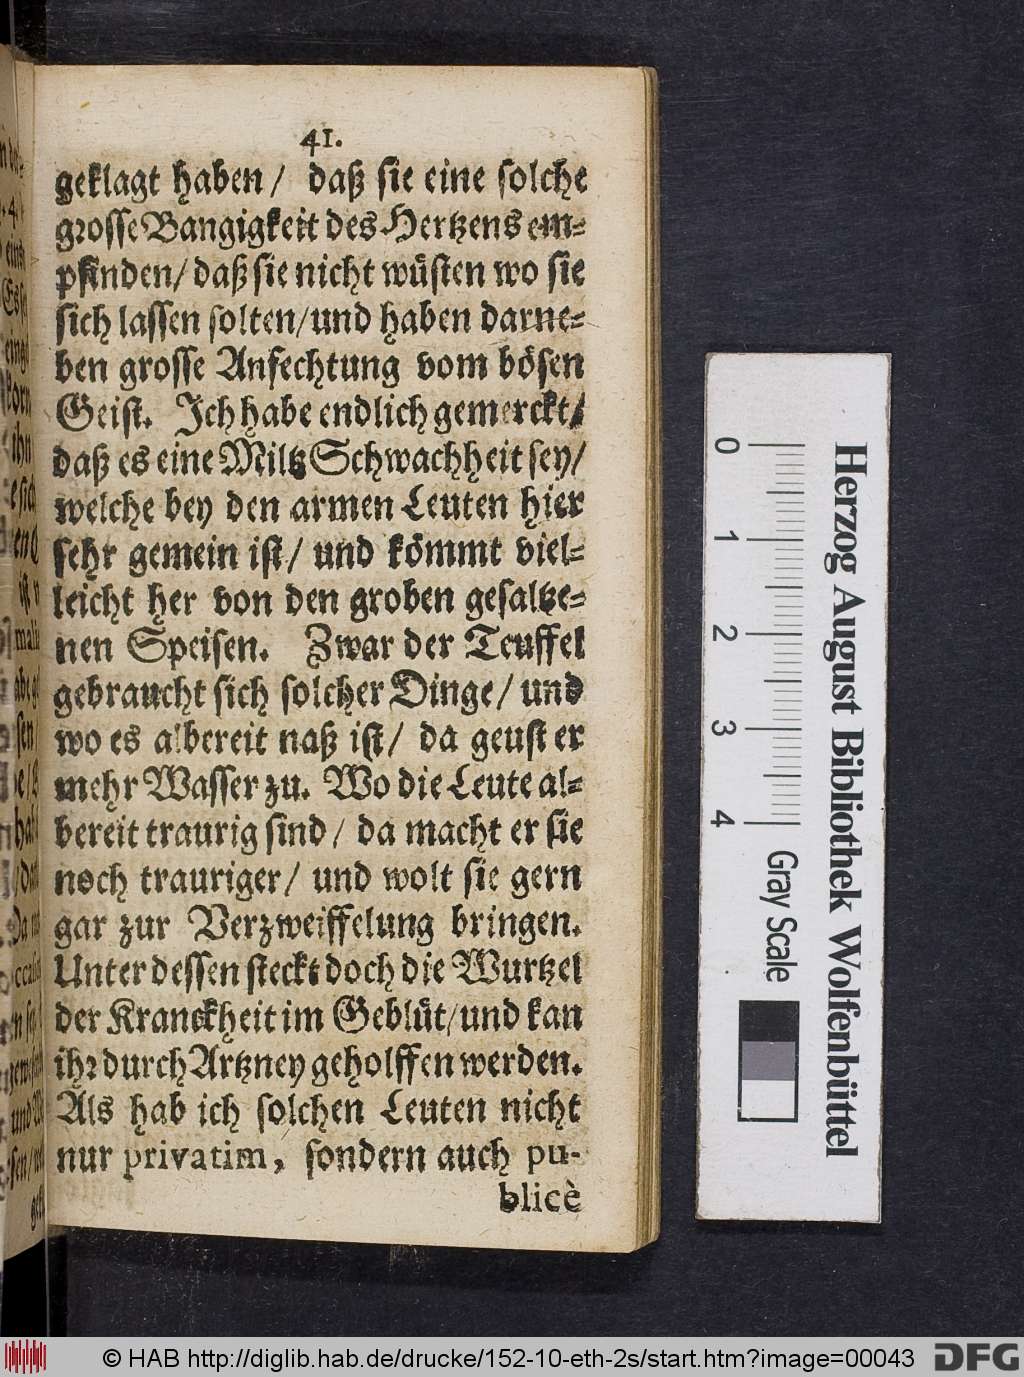 41.
geklagt haben / daß sie eine solche
grosse Bangigkeit des Hertzens em-
pfinden / daß sie nicht wüsten wo sie
sich lassen solten / und haben darne-
ben grosse Anfechtung vom bösen
Geist. Ich habe endlich gemerckt /
daß es eine Miltz Schwachheit sey /
welche bey den armen Leuten hier
sehr gemein ist / und kömmt viel-
leicht her von den groben gesaltze-
nen Speisen. Zwar der Teuffel
gebraucht sich solcher Dinge / und
wo es albereit naß ist / da geust er
mehr Wasser zu. Wo die Leute al-
bereit traurig sind / da macht er sie
noch trauriger / und wolt sie gern
gar zur Verzweiffelung bringen.
Unterdessen steckt doch die Wurtzel
der Kranckheit im Geblüt / und kan
ihr durch Artzney geholffen werden.
Als hab ich solchen Leuten nicht
nur privatim, sondern auch pu-
blicè
Herzog August Bibliothek Wolfenbüttel
0 1 2 3 4
Gray Scale
© HAB http://diglib.hab.de/drucke/152-10-eth-2s/start.htm?image=00043
DFG